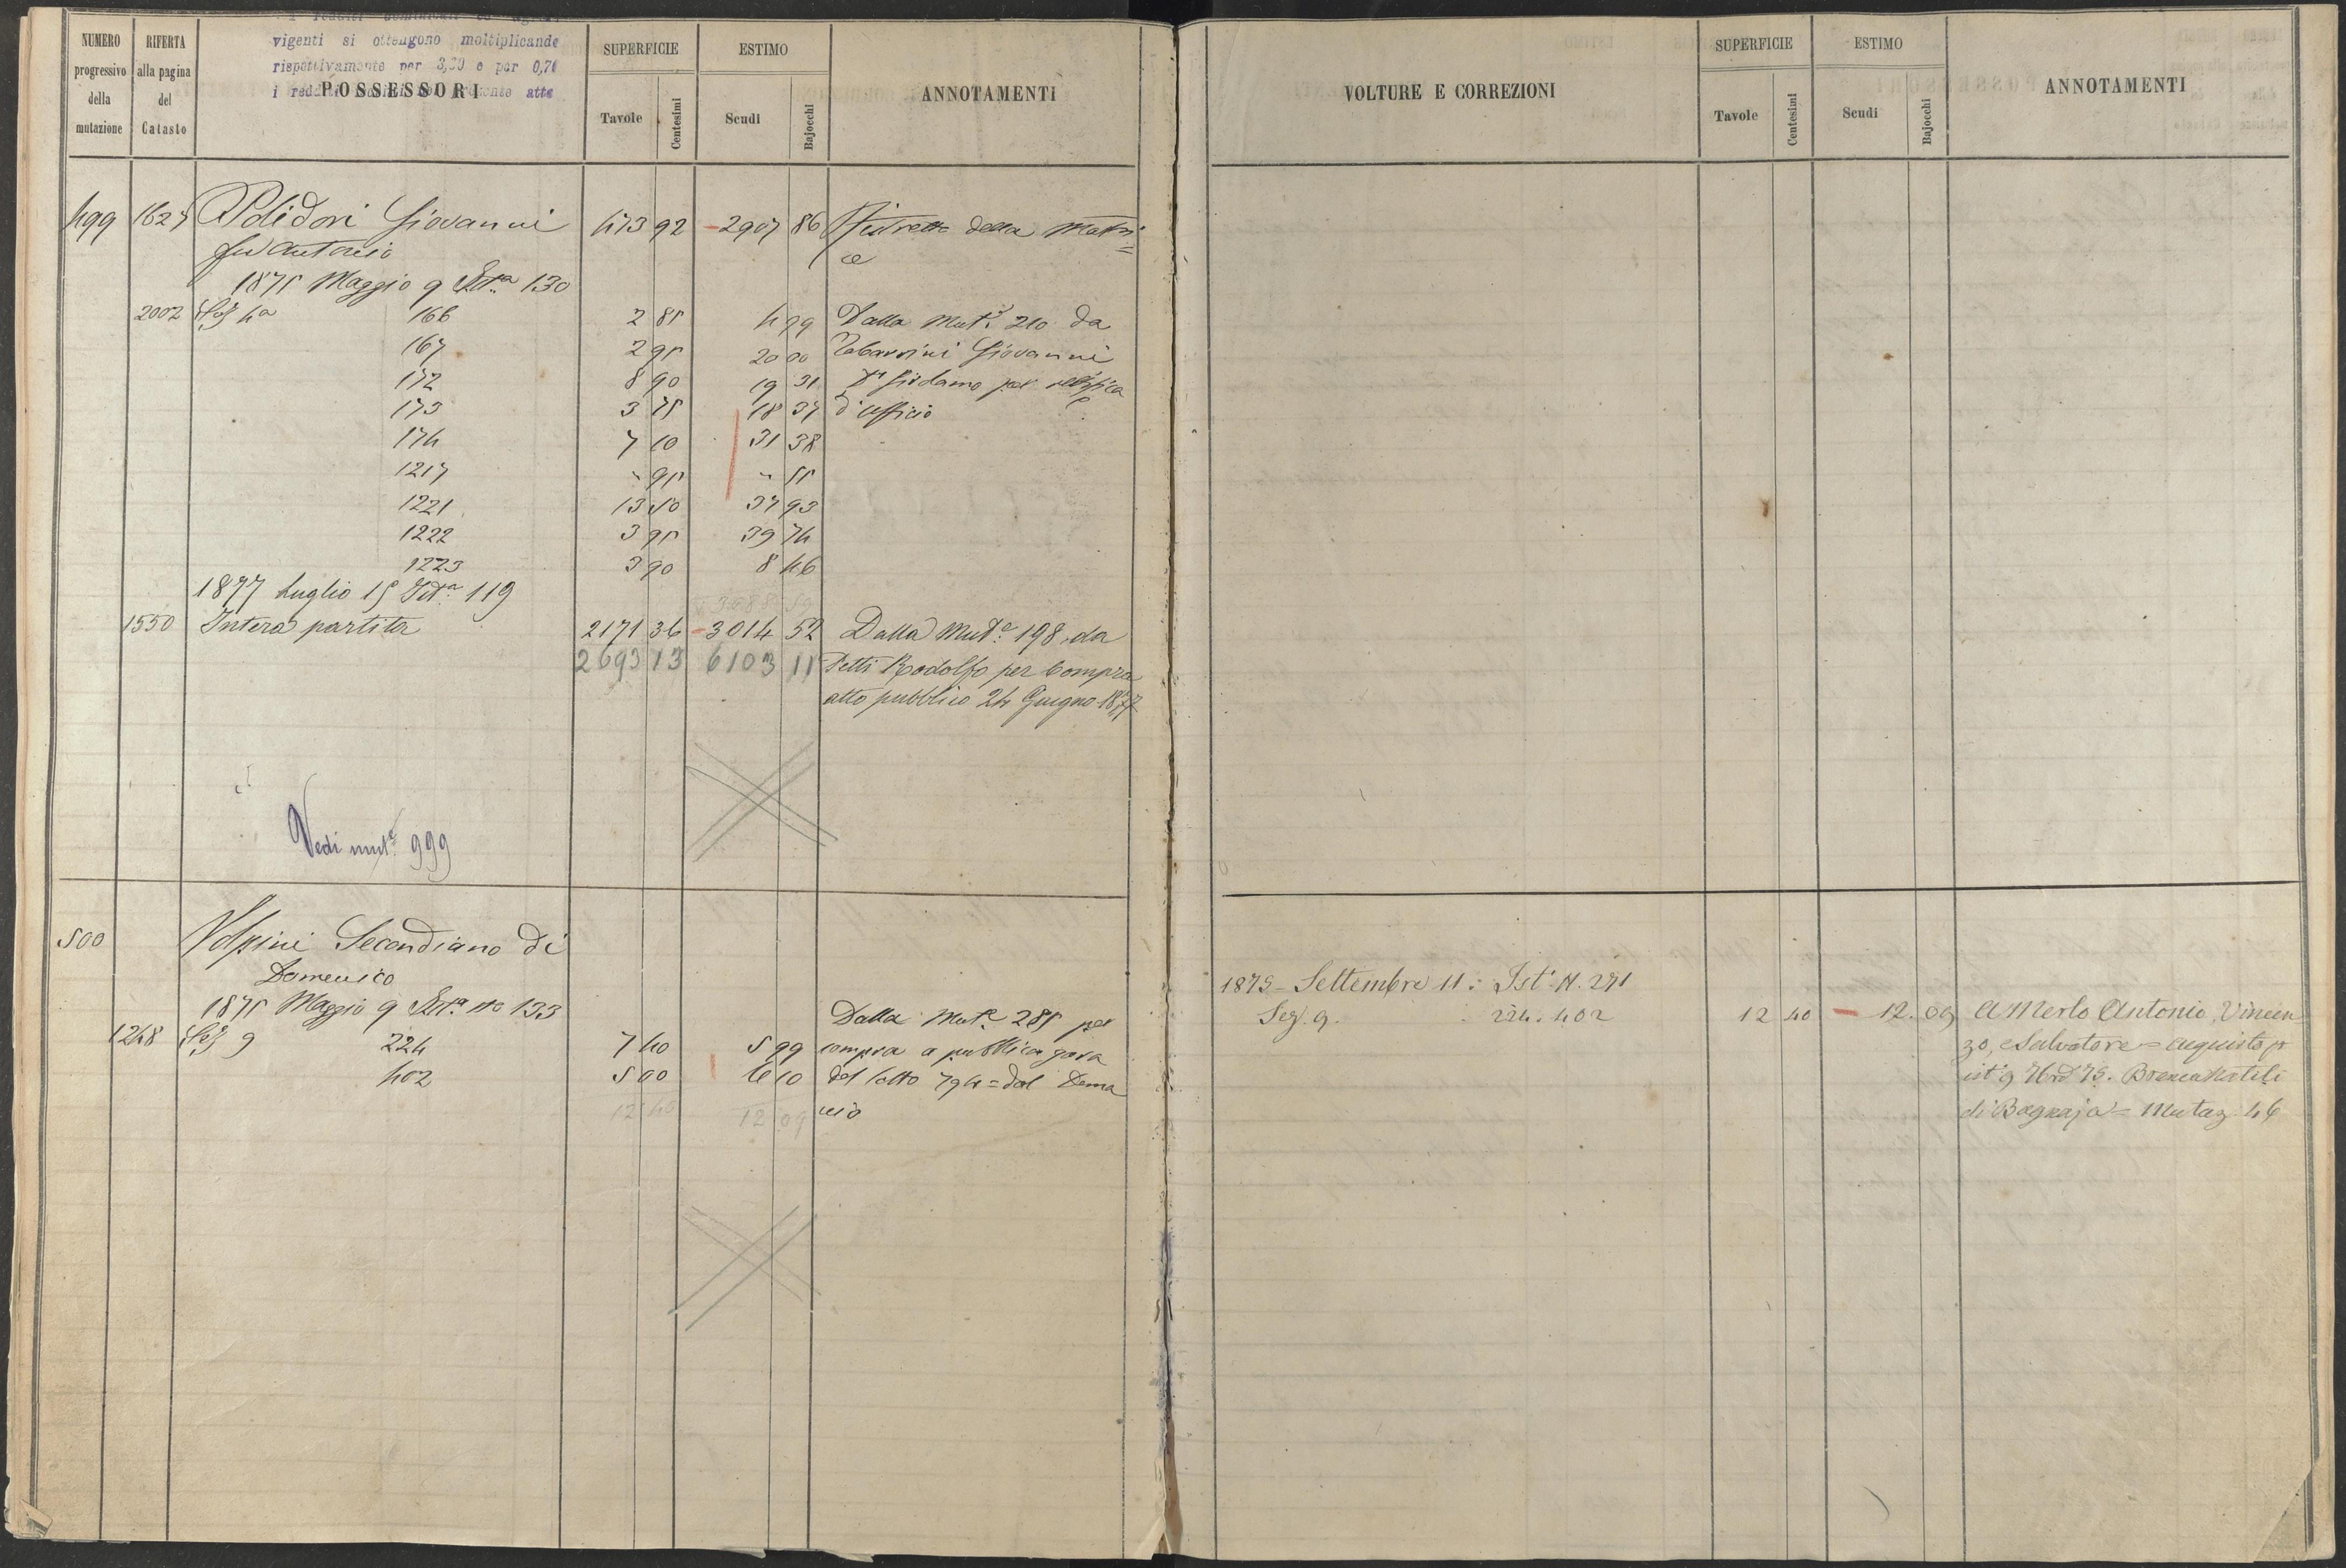 NUMERO progressivo della mutazione
RIFERTA alla pagina del Catasto
vigenti si ottengono moltiplicande
rispettivamente per 3,30 e per 0,70
POSSESSORI
SUPERFICIE
Tavole
Centesimi
ESTIMO
Scudi
Bajocchi
ANNOTAMENTI
499 1627 Polidori Giovanni 473 92 2907 86 Ristretto della Matri=
fu Antonio ce
1875 Maggio 9 Ista 130
2002 Sez 4a 166 2 85 4 99 Dalla Muta 210 da
167 2 95 20 00 Tabarrini Giovanni
172 8 90 19 31 Girolamo per rettifica
173 3 75 18 37 d'ufficio
174 7 10 31 38
1217 " 95 " 55
1221 13 50 37 93
1222 3 95 39 74
1223 3 90 8 46
1877 Luglio 15 Ista 119
1550 Intera partita 2171 36 3014 52 Dalla Muta 198 da
2693 13 6103 11 Petti Rodolfo per Compra
atto pubblico 24 Giugno 1877
Vedi muta 999
500 Volpini Secondiano di
Domenico
1875 Maggio 9 Ista no 133
Dalla Muta 285 per
1248 Sez 9 224 7 40 5 99 compra a pubblica gara
402 5 00 6 10 del lotto 794 = dal Dema
12 40 12 09 nio
VOLTURE E CORREZIONI
SUPERFICIE
Tavole
Centesimi
ESTIMO
Scudi
Bajocchi
ANNOTAMENTI
1875 - Settembre 11: Ista N. 271
Sez. 9. 224. 402 12 40 12. 09 A Merlo Antonio, Vincen
zo, e Salvatore = acquisto
di Bagnaja = Mutaz. 46